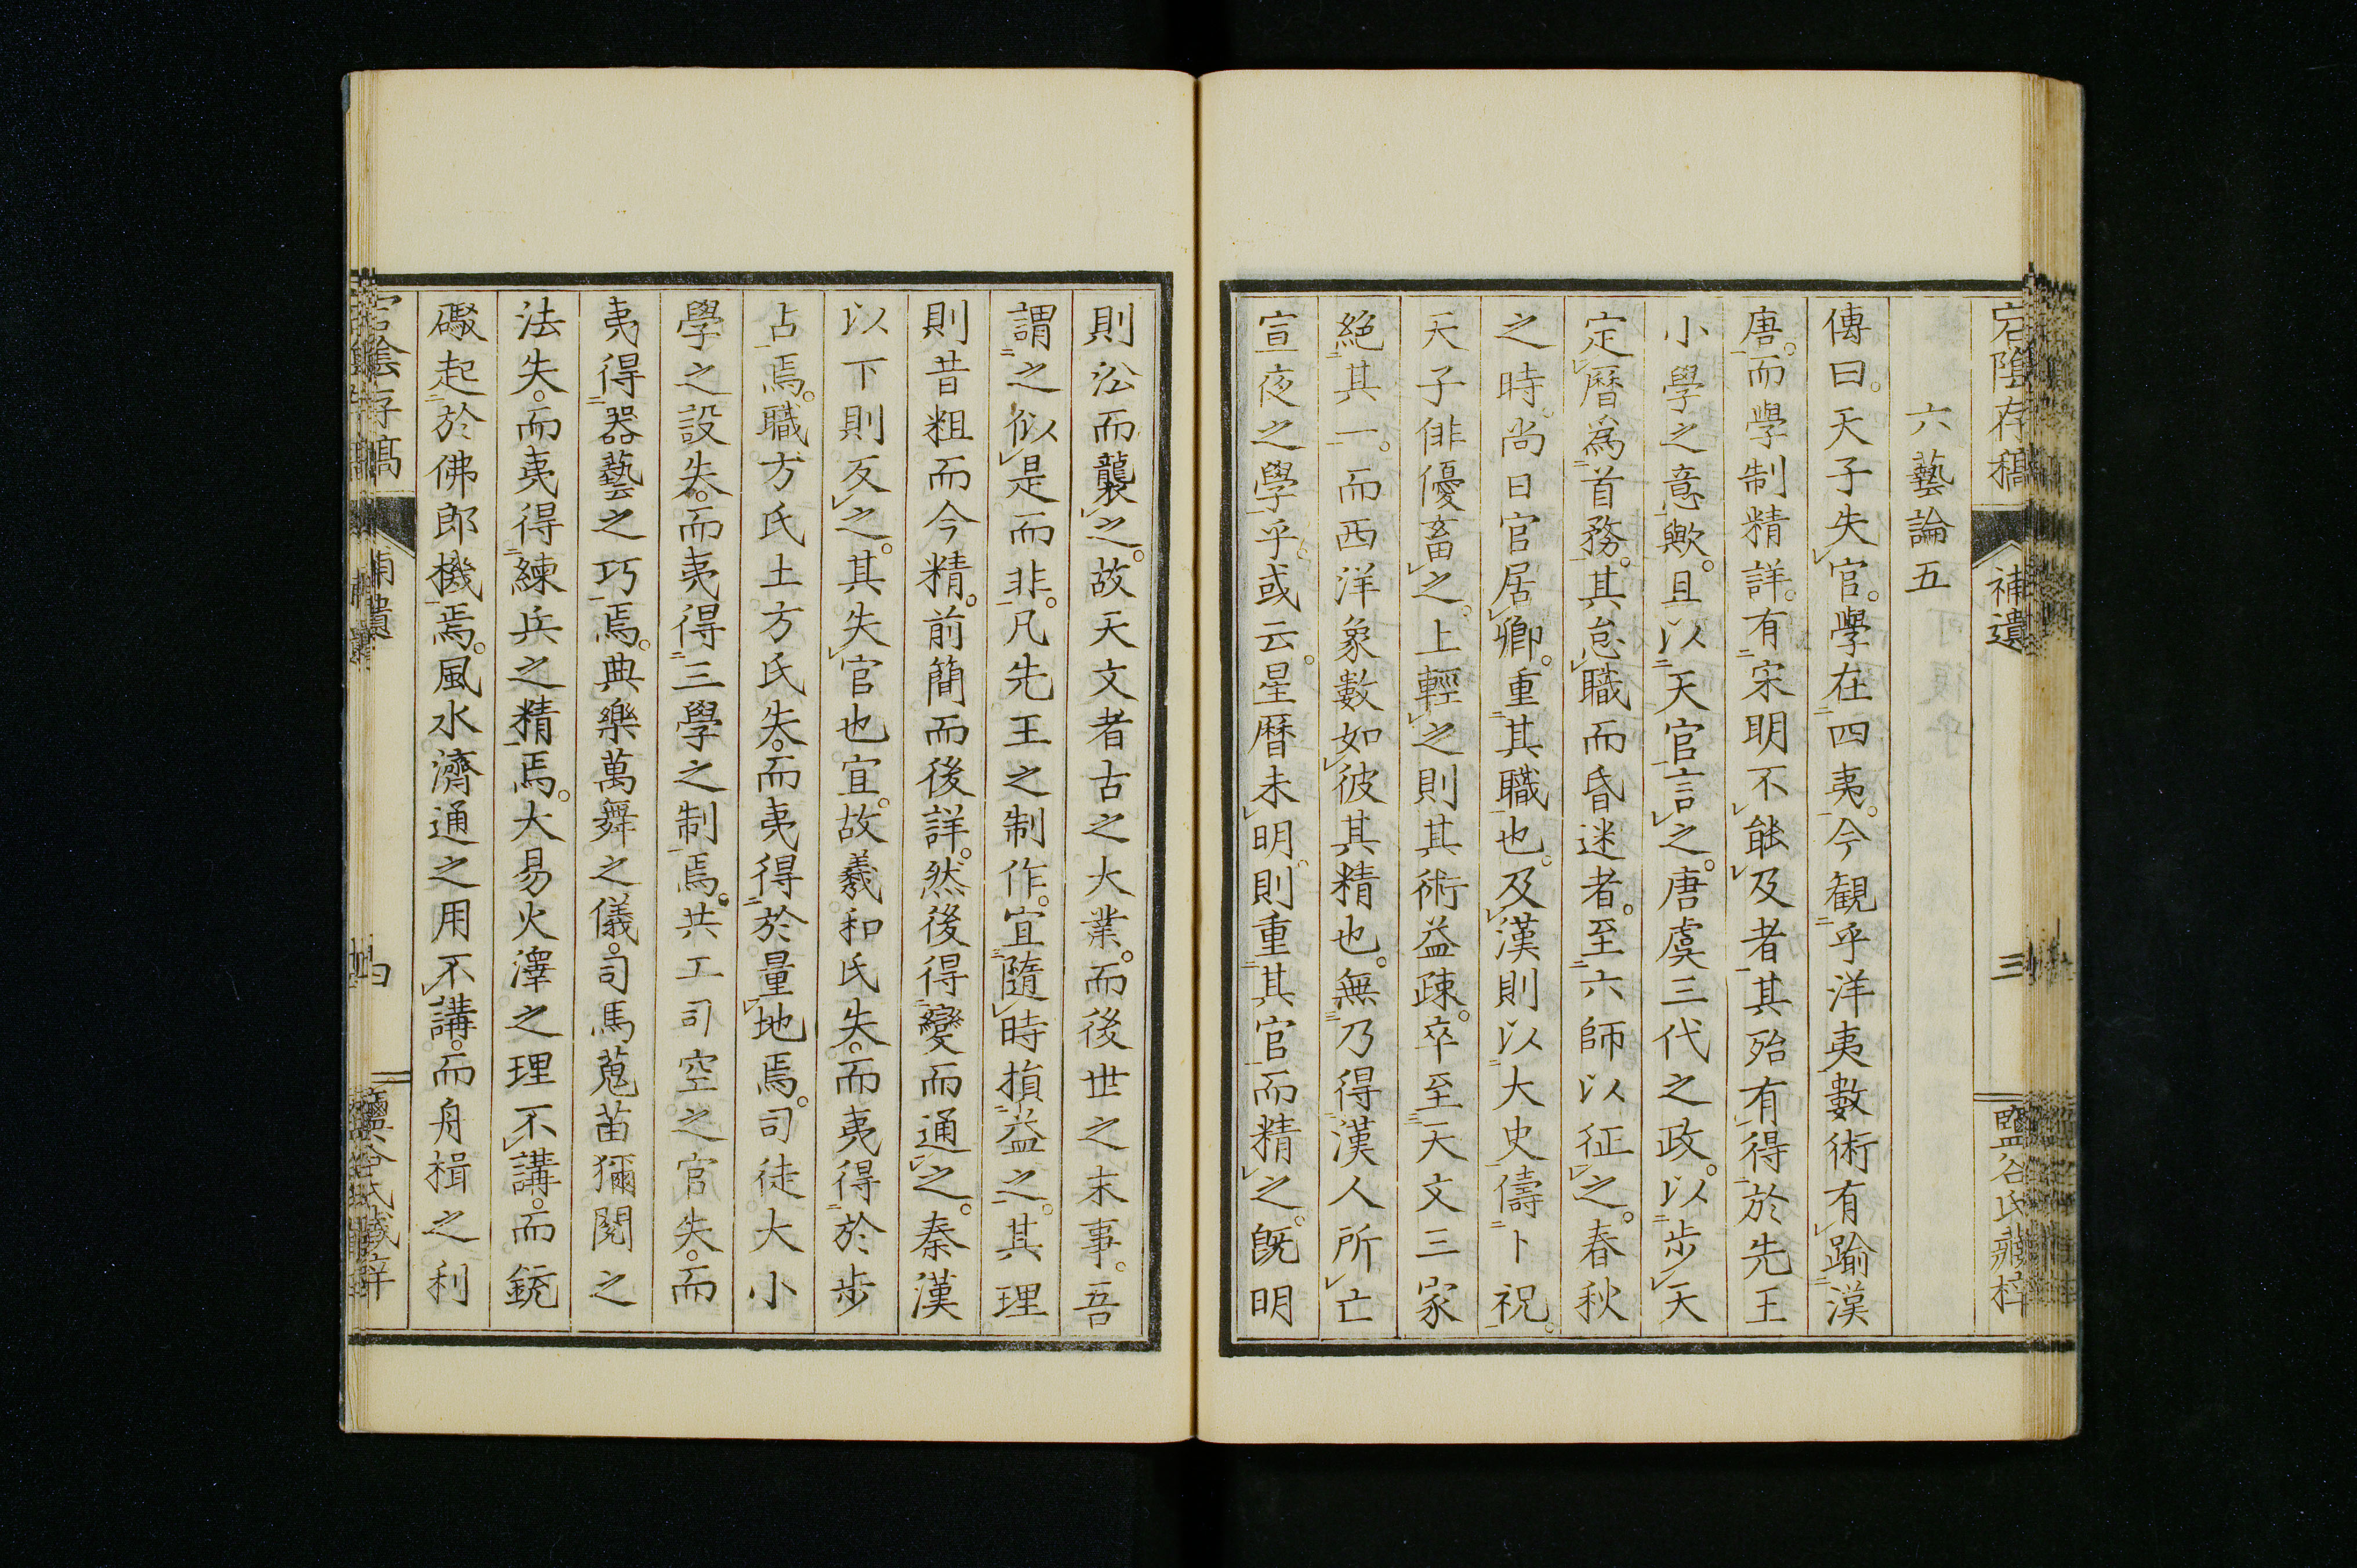 宕陰存稿 補遺 三
六藝論五
傳曰。天子失官。學在四夷。今観乎洋夷數術有踰漢
唐。而學制精詳。有宋明不能及者。其殆有得於先王
小學之意歟。且以天官言之。唐虞三代之政。以步天
定曆為首務。其怠職而昏迷者。至六師以征之。春秋
之時。尚日官居卿。重其職也。及漢則以大史儔卜祝。
天子俳優畜之。上輕之則其術益疎。卒至天文三家
絕其一。而西洋象數如彼其精也。無乃得漢人所亡
宣夜之學乎。或云。星曆未明。則重其官而精之。既明
則㳂而襲之。故天文者古之大業。而後世之末事。吾
謂之似是而非。凡先王之制作。宜隨時損益之。其理
則昔粗而今精。前簡而後詳。然後得變而通之。秦漢
以下則反之。其失官也宜。故羲和氏失。而夷得於步
占焉。職方氏土方氏失。而夷得於量地焉。司徒大小
學之設失。而夷得三學之制焉。共工司空之官失。而
夷得器藝之巧焉。典樂萬舞之儀。司馬蒐苗獮閱之
法失。而夷得練兵之精焉。大易火澤之理不講。而銃
礮起於佛郎機焉。風水濟通之用不講。而舟楫之利